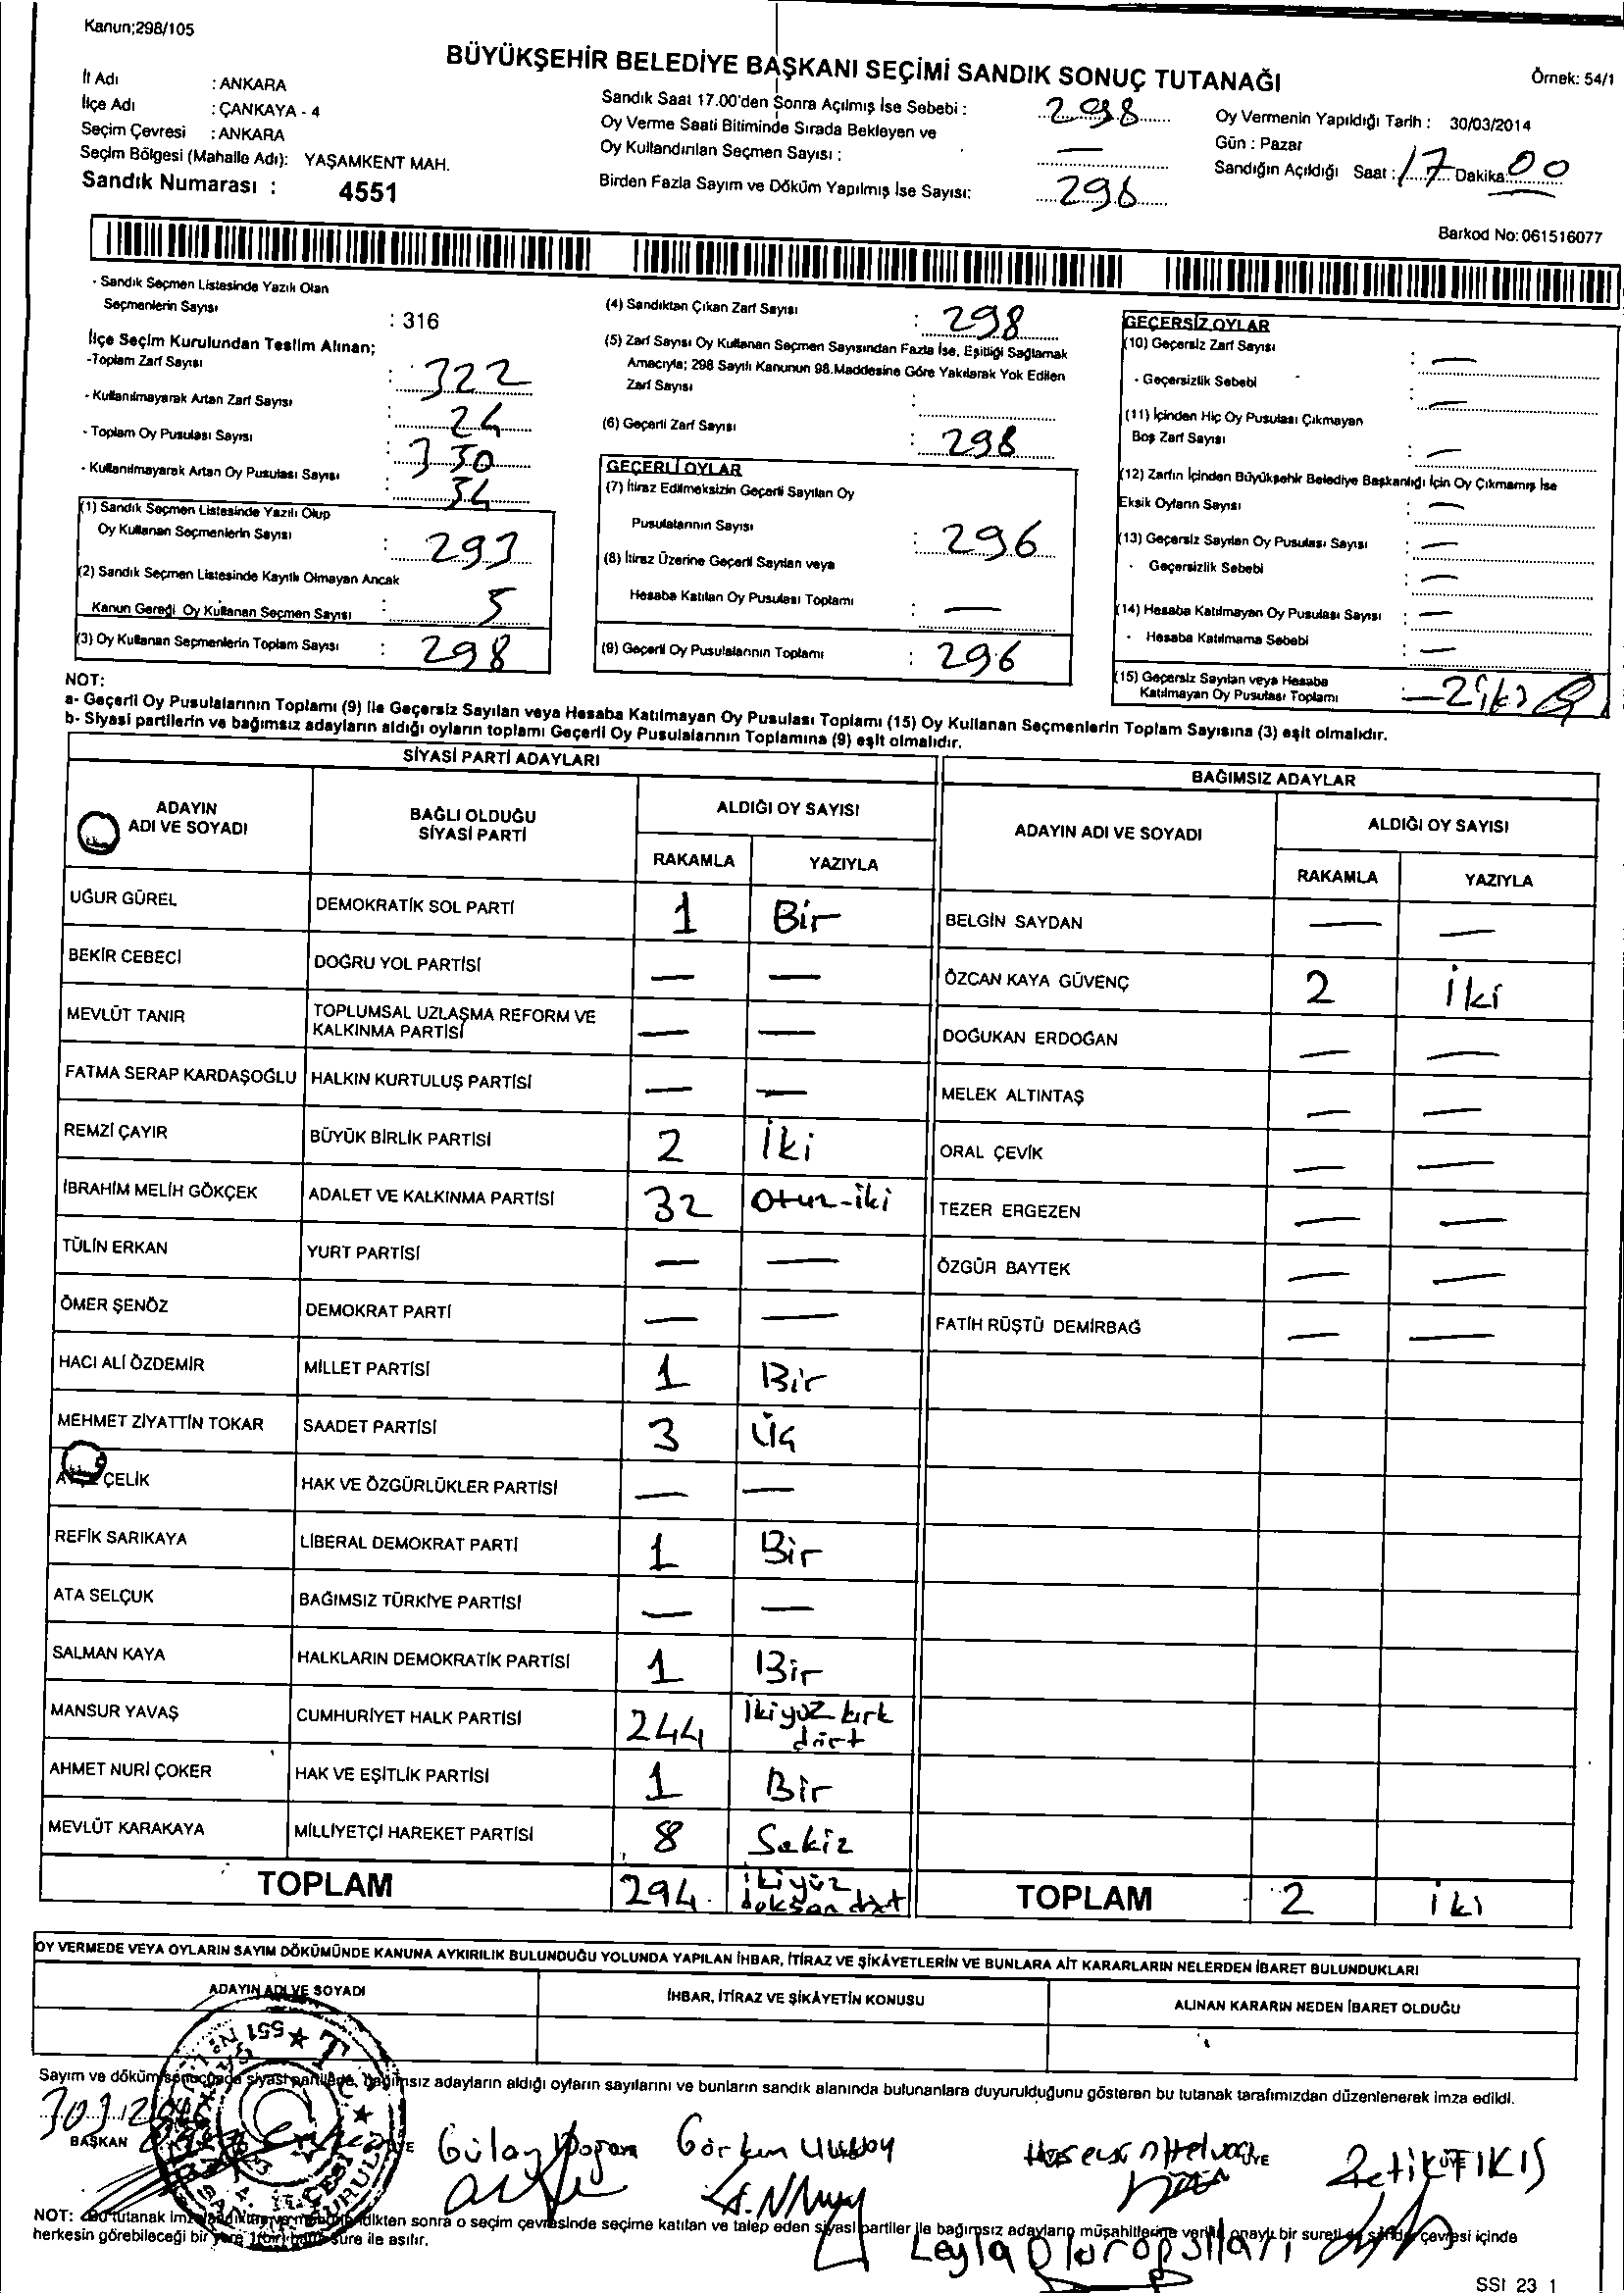 Kanun;298/105
BÜYÜKŞEHİR BELEDİYE BAŞKANI SEÇİMİ SANDIK SONUÇ TUTANAĞI
Örnek: 54/1
İl Adı : ANKARA
İlçe Adı : ÇANKAYA - 4
Seçim Çevresi : ANKARA
Seçim Bölgesi (Mahalle Adı): YAŞAMKENT MAH.
Sandık Numarası : 4551
Sandık Saat 17.00'den Sonra Açılmış İse Sebebi : 298
Oy Verme Saati Bitiminde Sırada Bekleyen ve
Oy Kullandırılan Seçmen Sayısı : —
Birden Fazla Sayım ve Döküm Yapılmış İse Sayısı: 296
Oy Vermenin Yapıldığı Tarih : 30/03/2014
Gün : Pazar
Sandığın Açıldığı Saat : 17 Dakika: 00
Barkod No: 061516077
- Sandık Seçmen Listesinde Yazılı Olan
Seçmenlerin Sayısı : 316
İlçe Seçim Kurulundan Teslim Alınan;
-Toplam Zarf Sayısı : 322
- Kullanılmayarak Artan Zarf Sayısı : 24
- Toplam Oy Pusulası Sayısı : 330
- Kullanılmayarak Artan Oy Pusulası Sayısı : 34
(1) Sandık Seçmen Listesinde Yazılı Olup
Oy Kullanan Seçmenlerin Sayısı : 293
(2) Sandık Seçmen Listesinde Kayıtlı Olmayan Ancak
Kanun Gereği Oy Kullanan Seçmen Sayısı : 5
(3) Oy Kullanan Seçmenlerin Toplam Sayısı : 298
(4) Sandıktan Çıkan Zarf Sayısı : 298
(5) Zarf Sayısı Oy Kullanan Seçmen Sayısından Fazla İse, Eşitliği Sağlamak
Amacıyla; 298 Sayılı Kanunun 98.Maddesine Göre Yakılarak Yok Edilen
Zarf Sayısı :
(6) Geçerli Zarf Sayısı : 298
GEÇERLİ OYLAR
(7) İtiraz Edilmeksizin Geçerli Sayılan Oy
Pusulalarının Sayısı : 296
(8) İtiraz Üzerine Geçerli Sayılan veya
Hesaba Katılan Oy Pusulası Toplamı : —
(9) Geçerli Oy Pusulalarının Toplamı : 296
GEÇERSİZ OYLAR
(10) Geçersiz Zarf Sayısı : —
- Geçersizlik Sebebi : —
(11) İçinden Hiç Oy Pusulası Çıkmayan
Boş Zarf Sayısı : —
(12) Zarfın İçinden Büyükşehir Belediye Başkanlığı İçin Oy Çıkmamış İse
Eksik Oyların Sayısı : —
(13) Geçersiz Sayılan Oy Pusulası Sayısı : —
- Geçersizlik Sebebi : —
(14) Hesaba Katılmayan Oy Pusulası Sayısı : —
- Hesaba Katılmama Sebebi : —
(15) Geçersiz Sayılan veya Hesaba
Katılmayan Oy Pusulası Toplamı : — 2 iki
NOT:
a- Geçerli Oy Pusulalarının Toplamı (9) ile Geçersiz Sayılan veya Hesaba Katılmayan Oy Pusulası Toplamı (15) Oy Kullanan Seçmenlerin Toplam Sayısına (3) eşit olmalıdır.
b- Siyasi partilerin ve bağımsız adayların aldığı oyların toplamı Geçerli Oy Pusulalarının Toplamına (9) eşit olmalıdır.
SİYASİ PARTİ ADAYLARI
ADAYIN ADI VE SOYADI
BAĞLI OLDUĞU SİYASİ PARTİ
ALDIĞI OY SAYISI
RAKAMLA YAZIYLA
UĞUR GÜREL DEMOKRATİK SOL PARTİ 1 Bir
BEKİR CEBECİ DOĞRU YOL PARTİSİ — —
MEVLÜT TANIR TOPLUMSAL UZLAŞMA REFORM VE
KALKINMA PARTİSİ — —
FATMA SERAP KARDAŞOĞLU HALKIN KURTULUŞ PARTİSİ — —
REMZİ ÇAYIR BÜYÜK BİRLİK PARTİSİ 2 İki
İBRAHİM MELİH GÖKÇEK ADALET VE KALKINMA PARTİSİ 32 Otuz-iki
TÜLİN ERKAN YURT PARTİSİ — —
ÖMER ŞENÖZ DEMOKRAT PARTİ — —
HACI ALİ ÖZDEMİR MİLLET PARTİSİ 1 Bir
MEHMET ZİYATTİN TOKAR SAADET PARTİSİ 3 Üç
ÇELİK HAK VE ÖZGÜRLÜKLER PARTİSİ — —
REFİK SARIKAYA LİBERAL DEMOKRAT PARTİ 1 Bir
ATA SELÇUK BAĞIMSIZ TÜRKİYE PARTİSİ — —
SALMAN KAYA HALKLARIN DEMOKRATİK PARTİSİ 1 Bir
MANSUR YAVAŞ CUMHURİYET HALK PARTİSİ 244 İkiyüz kırk
dört
AHMET NURİ ÇOKER HAK VE EŞİTLİK PARTİSİ 1 Bir
MEVLÜT KARAKAYA MİLLİYETÇİ HAREKET PARTİSİ 8 Sekiz
TOPLAM 294 ikiyüz
doksan dört
BAĞIMSIZ ADAYLAR
ADAYIN ADI VE SOYADI
ALDIĞI OY SAYISI
RAKAMLA YAZIYLA
BELGİN SAYDAN — —
ÖZCAN KAYA GÜVENÇ 2 iki
DOĞUKAN ERDOĞAN — —
MELEK ALTINTAŞ — —
ORAL ÇEVİK — —
TEZER ERGEZEN — —
ÖZGÜR BAYTEK — —
FATİH RÜŞTÜ DEMİRBAĞ — —
TOPLAM 2 iki
OY VERMEDE VEYA OYLARIN SAYIM DÖKÜMÜNDE KANUNA AYKIRILIK BULUNDUĞU YOLUNDA YAPILAN İHBAR, İTİRAZ VE ŞİKÂYETLERİN VE BUNLARA AİT KARARLARIN NELERDEN İBARET BULUNDUKLARI
ADAYIN ADI VE SOYADI
İHBAR, İTİRAZ VE ŞİKÂYETİN KONUSU
ALINAN KARARIN NEDEN İBARET OLDUĞU
Sayım ve döküm sonucunda siyasi partilerle, bağımsız adayların aldığı oyların sayılarını ve bunların sandık alanında bulunanlara duyurulduğunu gösteren bu tutanak tarafımızdan düzenlenerek imza edildi.
BAŞKAN
Gülay Doğan
ÜYE
ÜYE
NOT: Bu tutanak sonra o seçim çevresinde seçime katılan ve talep eden siyasi partiler ile bağımsız adayların müşahitlerine onaylı bir sureti de sandık çevresi içinde
herkesin görebileceği bir yere süre ile asılır.
Leyla
SSI 23 1